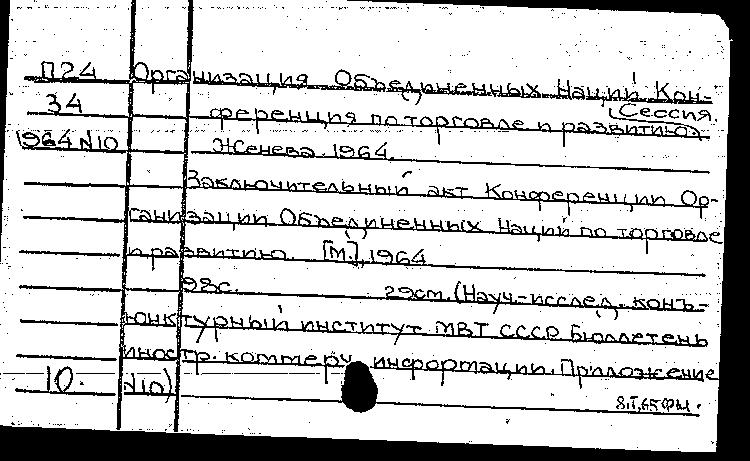 П24 Организация Объединенных Наций Кон-
34 ференция по торговле и развитию, Сессия.
1964 N10 Женева 1964.
Заключительный акт Конференции Ор-
ганизации Объединенных Наций по торговле
и развитию. [М.], 1964
98с. 29см. (Науч.-исслед. конъ-
юнктурный институт МВТ СССР Бюллетень
иностр. коммерч. информации. Приложение
10. N10)